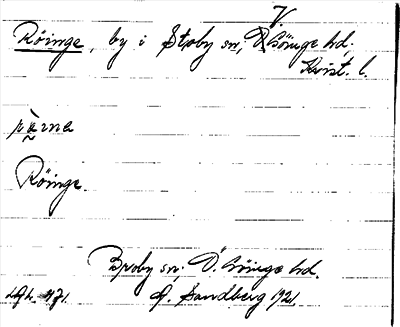 Röinge, by i Stoby sn; V. Göinge hd.
Krist. l.
Röinge.
Broby sn; Ö. Göinge hd.
G. Sandberg 1921.